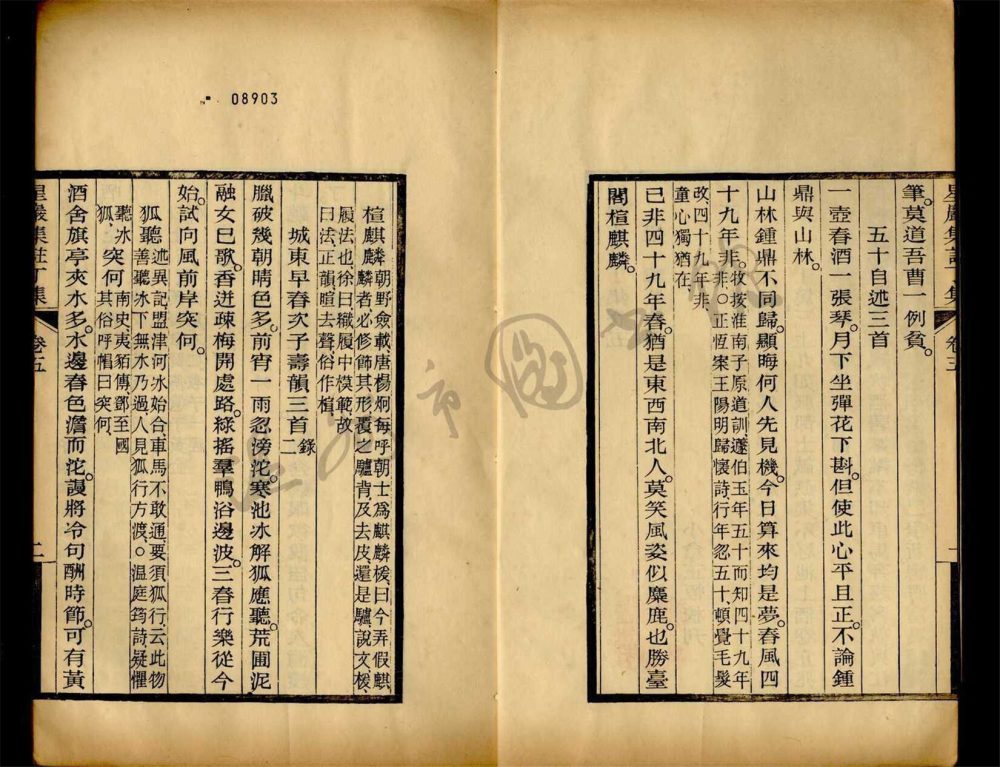 筆。莫道吾曹一例貧。
五十自述三首
一壺春酒一張琴。月下坐彈花下斟。但使此心平且正。不論鍾
鼎與山林。
山林鍾鼎不同歸。顯晦何人先見機。今日算來均是夢。春風四
十九年非。牧按淮南子原道訓、蘧伯玉年五十而知四十九年
非、〇正恆案王陽明歸懷詩、行年忽五十、頓覺毛髮
改、四十九年非、
童心獨猶在、
已非四十九年春。猶是東西南北人。莫笑風姿似麋鹿。也勝臺
閣楦麒麟。
星巖集註丁集
卷五
一
08903
楦麒麟 朝野僉載唐楊炯每呼朝士爲麒麟楥曰今弄假麒
麟者必修飾其形覆之驢背、及去皮、還是驢、說文楥、
履法也徐曰織履中模範故
曰法、正韻暄去聲俗作楦、
城東早春次子壽韻三首 錄二
臘破幾朝晴色多。前宵一雨忽滂沱。寒池冰解狐應聽。荒圃泥
融女已歌。香迸疎梅開處路。綠搖羣鴨浴邊波。三春行樂從今
始。試向風前岸突何。
狐聽 述異記盟津河冰始合車馬不敢通、要須狐行、云此物
善聽冰下無水乃過人見狐行方渡、〇温庭筠詩、疑懼
聽冰
狐、 突何 南史、夷貊傳鄧至國
其俗呼帽曰突何、
酒舍旗亭夾水多。水邊春色澹而沱。謾將冷句酬時節。可有黃
星巖集註丁集
卷五
二